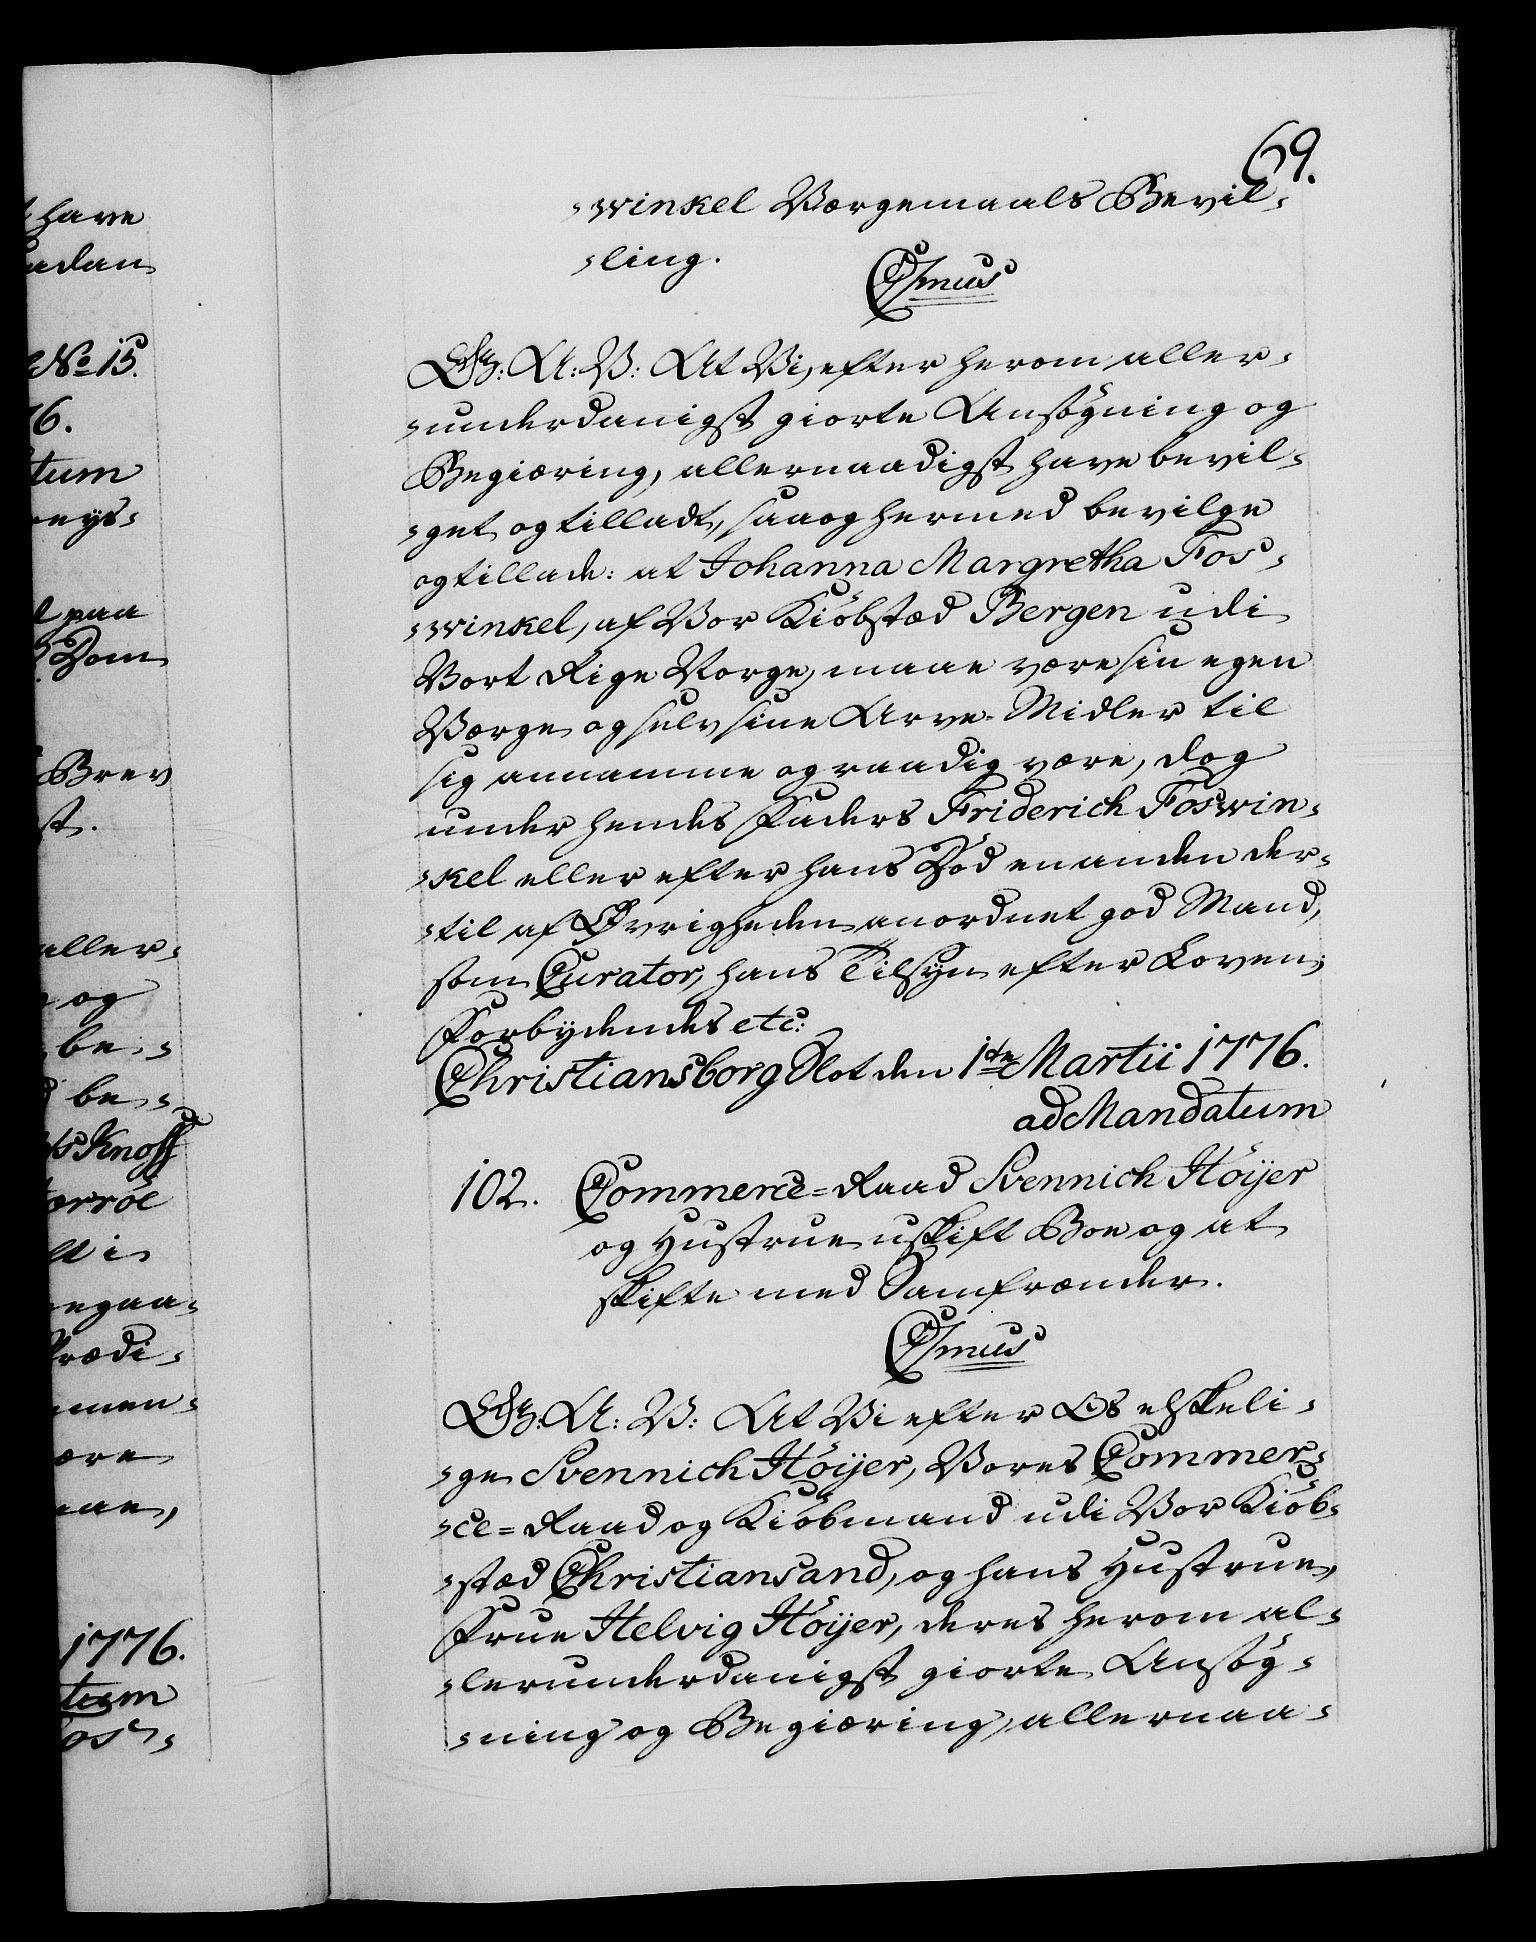 69.
-winkel Værgemaals Bevil-
-ling.
CSmus
G: A: V: At Vi, efter herom aller-
-underdanigst giorte Ansøgning og
Begiæring, allernaadigst have bevil-
-get og tilladt, saa og hermed bevilge
og tillade: at Johanna Margretha Fos-
-winkel, af Vor Kiøbstæd Bergen udi
Vort Rige Norge, maae være sin egen
Værge og selv sine Arve-Midler til
sig annamme og raadig være, dog
under hendes Faders Friderich Foswin-
-kel eller efter hans Død en anden der-
-til af Øvrigheden anordnet god Mand,
som Curator, hans Tilsyn efter Loven;
Forbydendes etc:
Christiansborg Slot den 1ste Martii 1776.
ad Mandatum
102. Commerce=Raad Svennich Höijer
og Hustrue uskift Boe og at
skifte med Samfrænder.
CSmus
G: A: V: At Vi efter Os elskeli-
-ge Svennich Höijer, Vores Commer-
-ce=Raad og Kiøbmand udi Vor Kiøb-
-stæd Christiansand, og hans Hustrue,
Frue Helvig Höijer, deres herom al-
-lerunderdanigst giorte Ansøg-
-ning og Begiæring, allernaa-
have
adan
No 15.
76.
tum
paa
Dom
Brev
st.
aller-
og
be-
be-
Knoff
ærröe
i
egaa-
Prædi-
men-
ære
1776.
tum
os-